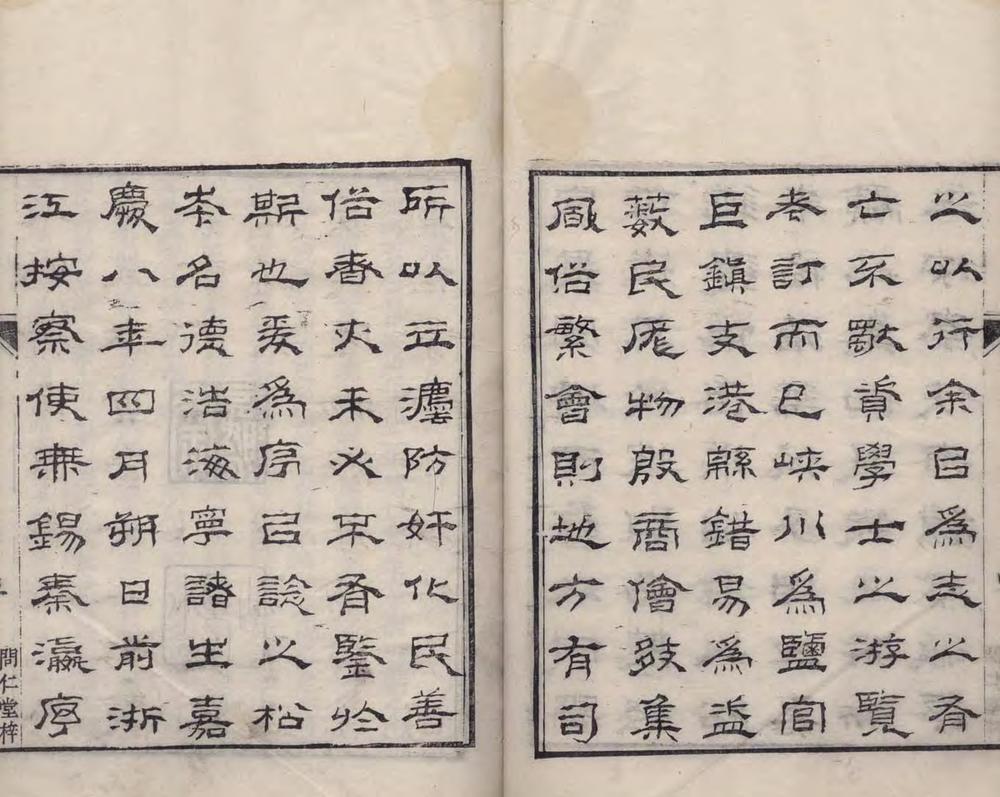 之以行余曰爲志之有
亡不獸資學士之游覽
考訂而已峽川爲鹽官
巨鎮支港緜錯易爲盜
藪民厖物殷商儈趍集
風俗繁會則地方有司
所以立灋防奸化民善
俗者大未必不有鑒於
斯也爰爲序己諗之松
本名德浩海寧諸生嘉
慶八年四月朔日前浙
江按察使無錫秦瀛序
問仁堂梓